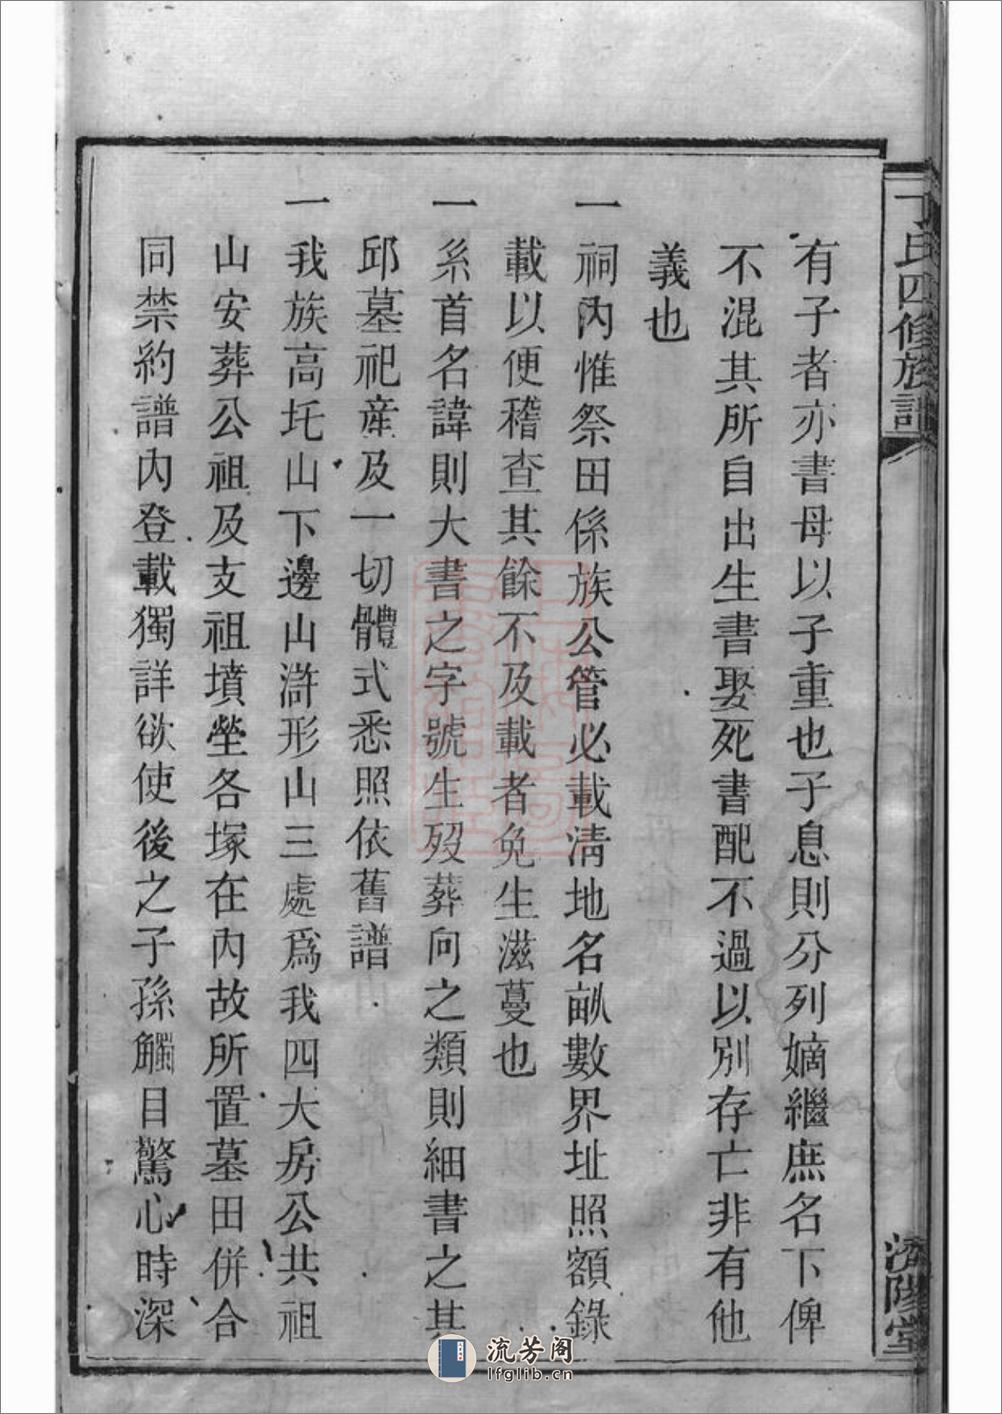 丁氏四修族譜
濟陽堂
有子者亦書母以子重也子息則分列嫡繼庶名下俾
不混其所自出生書娶死書配不過以別存亡非有他
義也
一祠內惟祭田係族公管必載淸地名畝數界址照額錄
載以便稽查其餘不及載者免生滋蔓也
一系首名諱則大書之字號生歿葬向之類則細書之其
邱墓祀產及一切體式悉照依舊譜
一我族高圫山下邊山滸形山三處爲我四大房公共祖
山安葬公祖及支祖墳塋各塚在內故所置墓田併合
同禁約譜內登載獨詳欲使後之子孫觸目驚心時深
流芳阁
lfglib.cn